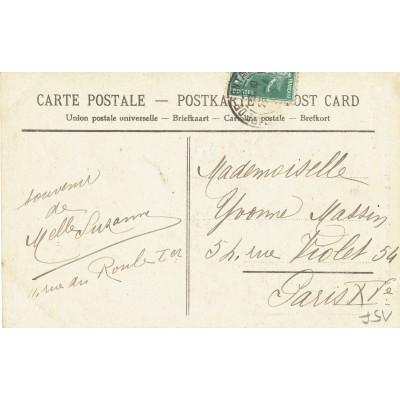 CARTE POSTALE — POSTKARTE — POST CARD
Union postale universelle — Briefkaart — Cartolina postale — Brefkort
Souvenir
de
Melle Suzanne
rue du Roule 1er
Mademoiselle
Yvonne Massin
54, rue Violet 54
Paris XVe
JSV